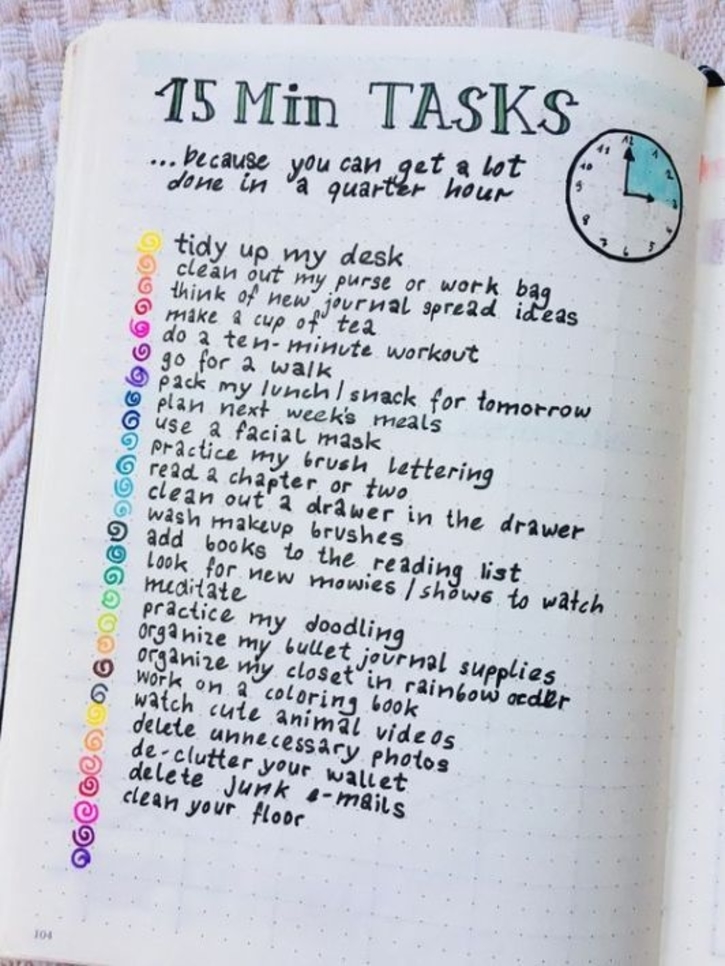 15 Min TASKS
...because you can get a lot
done in a quarter hour
12
1
2
3
4
5
6
7
8
9
10
11
tidy up my desk
clean out my purse or work bag
think of new journal spread ideas
make a cup of tea
do a ten-minute workout
go for a walk
pack my lunch / snack for tomorrow
plan next week's meals
use a facial mask
practice my brush lettering
read a chapter or two
clean out a drawer in the drawer
wash makeup brushes
add books to the reading list
look for new mowies / shows to watch
meditate
practice my doodling
organize my bullet journal supplies
organize my closet in rainbow order
work on a coloring book
watch cute animal videos
delete unnecessary photos
de-clutter your wallet
delete junk e-mails
clean your floor
104